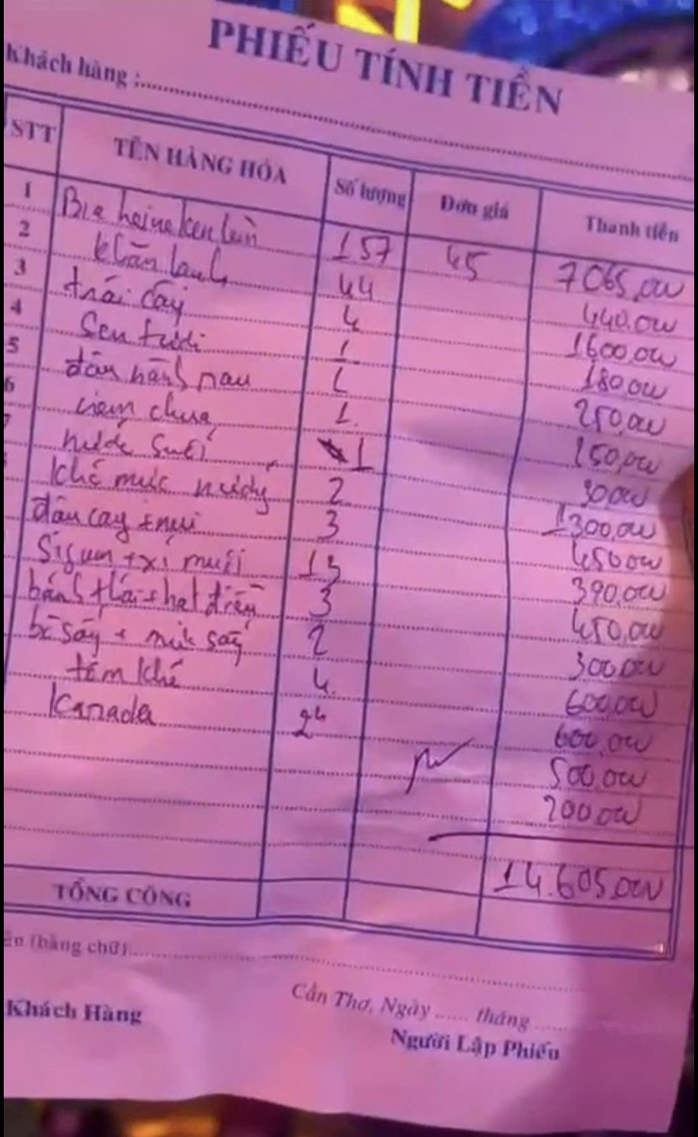 PHIẾU TÍNH TIỀN
Khách hàng :
STT TÊN HÀNG HÓA Số lượng Đơn giá Thanh tiền
1 Bia heineken lùn 157 45 7065,000
2 khăn lạnh 44 440,000
3 trái cây 4 1600,000
4 1 180,000
5 1 250,000
6 1 150,000
7 nước suối 1 30,000
khô mực nướng 2 1300,000
3 450,000
+ xí muội 13 390,000
bánh + hạt điều 3 450,000
bò sấy + mít sấy 2 300,000
tôm khô 4 600,000
Kanada 2h 600,000
500,000
200,000
14.605,000
TỔNG CÔNG
(bằng chữ)
Cần Thơ, Ngày ...... tháng
Khách Hàng Người Lập Phiếu